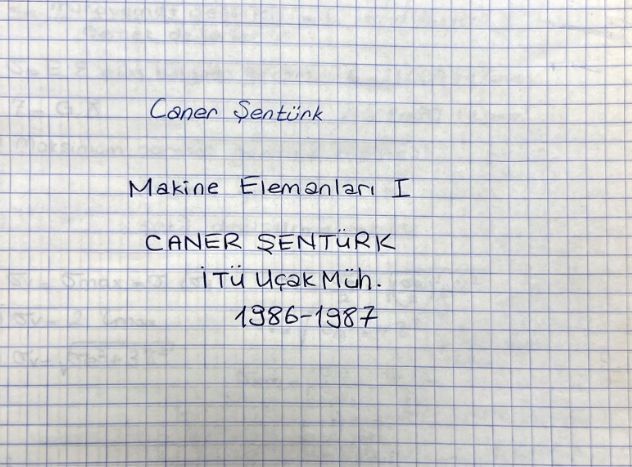 Caner Şentürk
Makine Elemanları I
CANER ŞENTÜRK
İTÜ Uçak Müh.
1986-1987